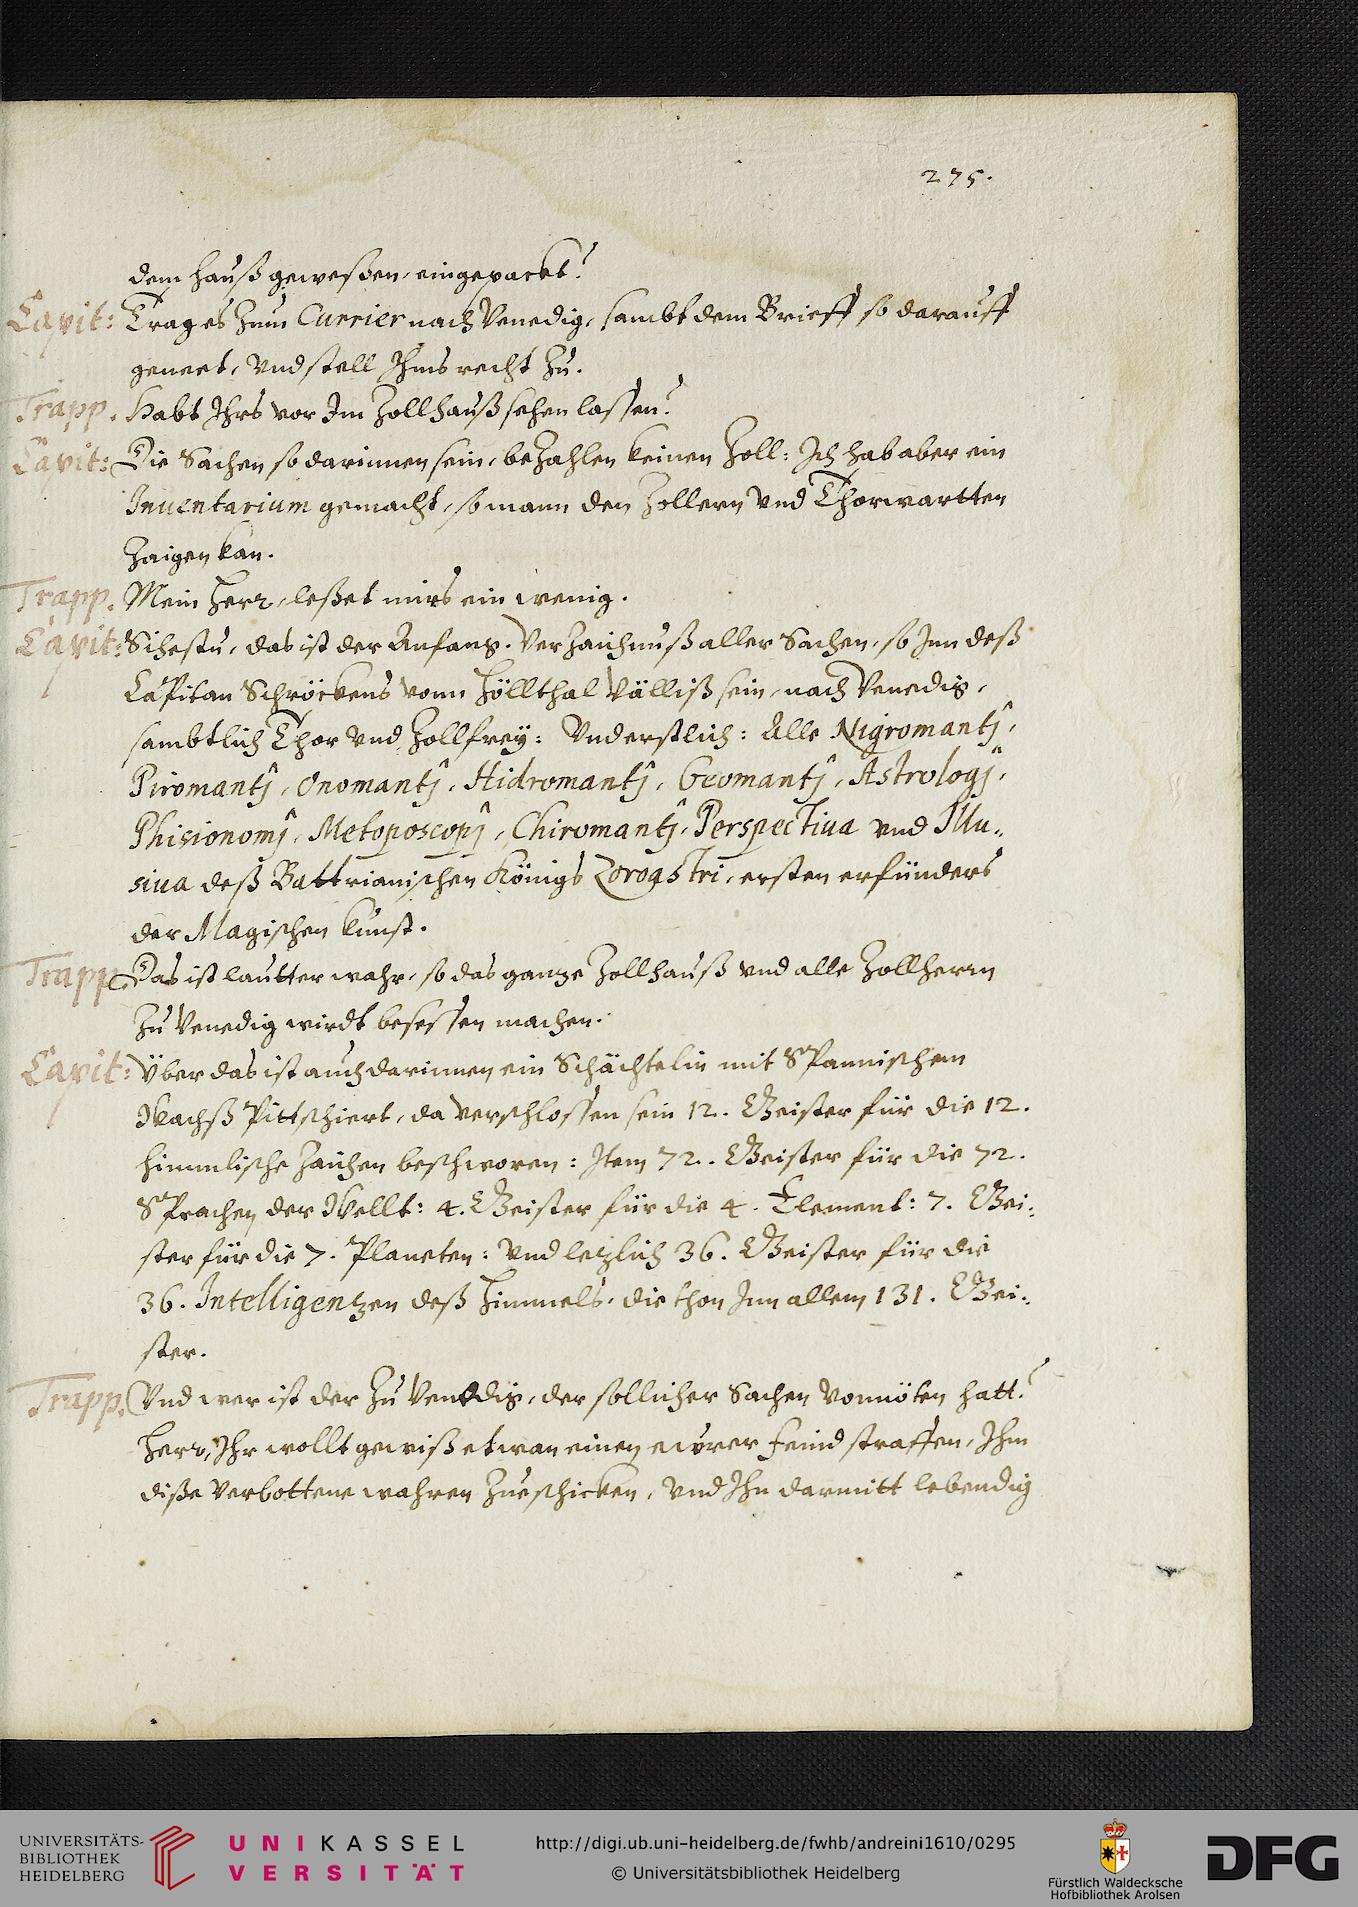 275.
dem Hauß geweßen, eingepackt?
Capit: Trag es zum Currier nach Venedig, sambt dem Brieff so darauff
geneet, Vnd stell Ihms recht zu.
Trapp. Habt Ihrs vor Im Zollhauß sehen lassen?
Capit: Die Sachen so darinnen sein, bezahlen keinen Zoll: Ich hab aber ein
Inuentarium gemacht, so mann den Zollern vnd Thorwartten
Zaigen kan.
Trapp. Mein Herr, leßet mirs ein wenig.
Capit: Sihestu, das ist der Anfang. Verzaichnuß aller Sachen, so Inn deß
Capitan Schröckens vonn Höllthal Välliß sein, nach Venedig,
sambtlich Thor vnd Zollfrey: Vnd erstlich: Alle Nigromantj,
Piromantj, Onomantj, Hidromantj, Geomantj, Astrologj,
Phisionomj, Metoposcopj, Chiromantj, Perspectiua vnd Illu-
siua deß Battrianischen Königs Zorogstri, ersten erfünders
der Magischen kunst.
Trapp. Das ist lautter wahr, so das ganze Zollhauß vnd alle Zollherrn
Zu Venedig wirdt besessen machen.
Capit: Über das ist auch darinnen ein Schächtelin mit Spannischem
Wachß Pittschiert, da verschlossen sein 12. Geister für die 12.
himmlische Zaichen beschworen: Item 72. Geister für die 72.
Sprachen der Wellt: 4. Geister für die 4. Element: 7. Gei-
ster für die 7. Planeten: Vnd letzlich 36. Geister für die
36. Intelligentzen deß Himmels, die thon Inn allem 131. Gei-
ster.
Trapp. Vnd wer ist der zu Venedig, der sollicher Sachen vonnöten hatt?
Herr, Ihr wollt gewiß etwan einen ewrer feind straffen, Ihm
diße verbottene wahren Zueschicken, Vnd Ihn darmitt lebendig
UNIVERSITÄTS-
BIBLIOTHEK
HEIDELBERG
UNIKASSEL
VERSITÄT
http://digi.ub.uni-heidelberg.de/fwhb/andreini1610/0295
© Universitätsbibliothek Heidelberg
Fürstlich Waldecksche
Hofbibliothek Arolsen
DFG